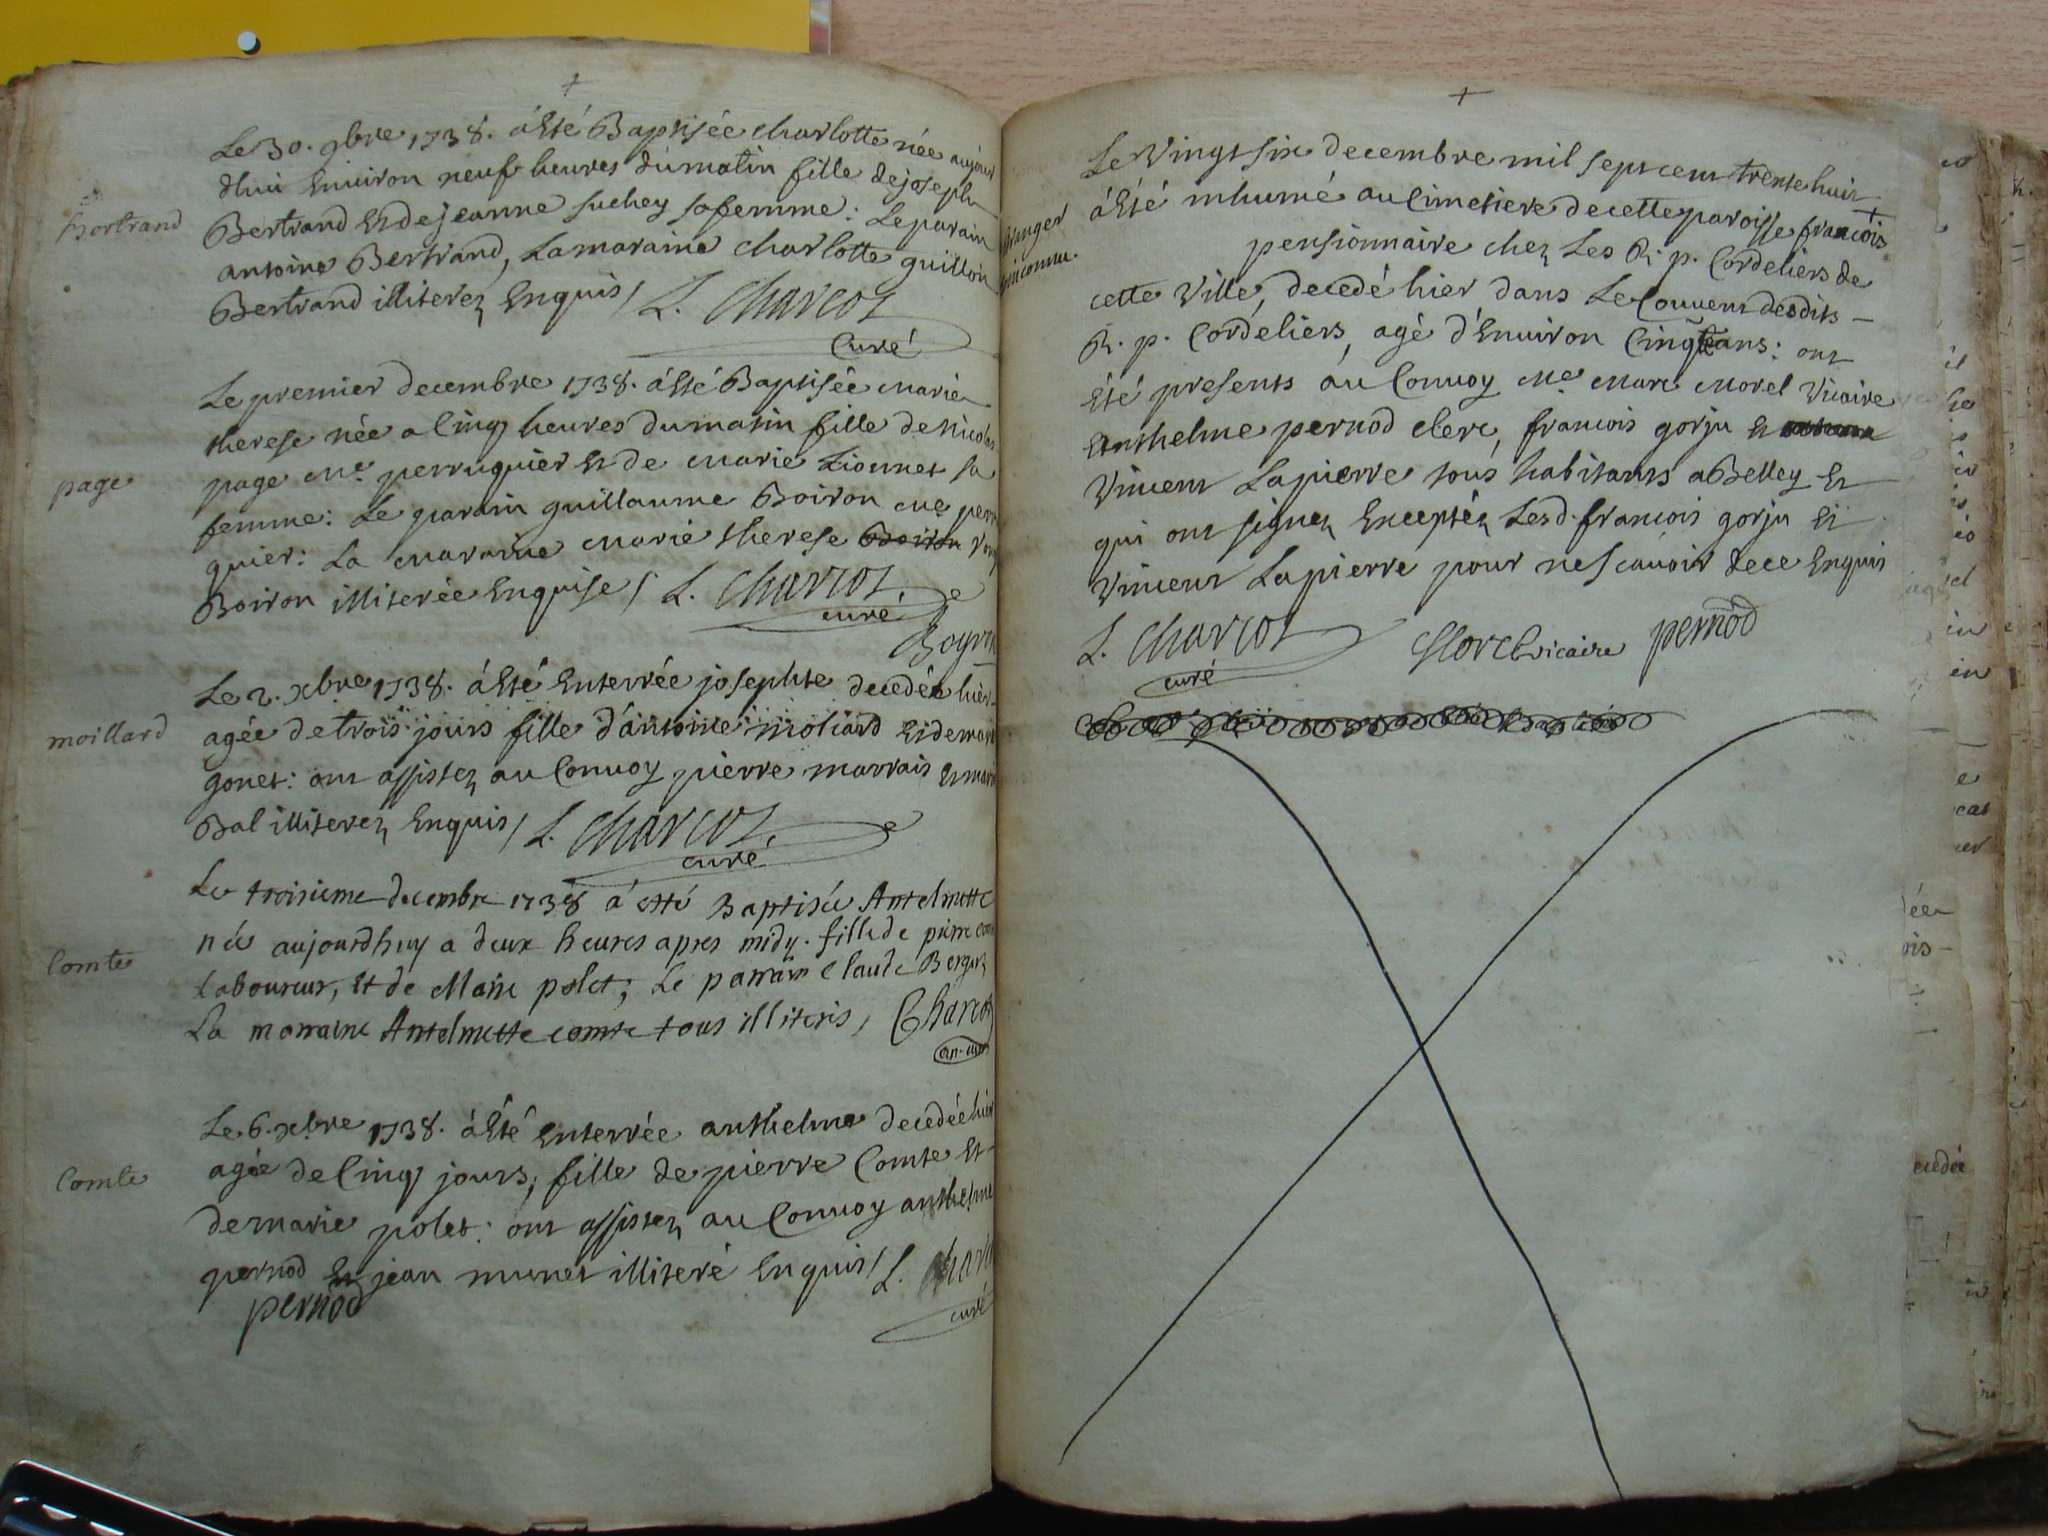 Bertrand
Le 30. 9bre 1738. á Eté Baptisée charlotte née aujour
dhui Environ neuf heures du matin fille de joseph
Bertrand Et de jeanne suchey sa femme : Le parain
antoine Bertrand, La maraine charlotte guillon
Bertrand illiterez Enquis / L. Charcot
Curé
page
Le premier decembre 1738. á Eté Baptisée marie
therese née a Cinq heures du matin fille de nicolas
page me. perruquier Et de marie Lionnet sa
femme : Le parain guillaume Boiron me perru
quier : La maraine marie therese
Boiron illiterée Enquise / L. Charcot
curé
moillard
Le 2. xbre 1738. á Eté Enterrée josephte decedée hier
agée de trois jours fille d'antoine moliard Et de marie
gonet : ont assistez au Convoy pierre marrais Et marie
Bal illiterez Enquis / L. Charcot
curé
Comte
Le troisieme decembre 1738 á esté Baptisée Antelmette
née aujourdhuy a deux heures apres midy. fille de pierre
Laboureur, et de Marie polet ; Le parrain Claude
La marraine Antelmette comte tous illiteris / Charcot
Comte
Le 6. xbre 1738. á Eté Enterrée anthelme decedée hier
agée de Cinq jours ; fille de pierre Comte Et
de marie polet : ont assistez au Convoy anthelme
pernod Et jean munet illiteré Enquis / L.
curé
pernod
Le Vingt six decembre mil sept cent trente huit
á Eté inhumé au Cimetiere de cette paroisse francois
etranger
inconnu.
pensionnaire chez Les R. p. Cordeliers de
cette Ville, decedé hier dans Le Couvent desdits
R. p. Cordeliers, agé d'Environ Cinqte ans : ont
Eté presents au Convoy me marc morel Vicaire
anthelme pernod clerc, francois gorju Et
Vincent Lapierre tous habitants a Belley Et
qui ont signez Exceptéz Lesd. francois gorju Et
Vincent Lapierre pour ne scavoir de ce Enquis
L. Charcot Morel vicaire pernod
curé